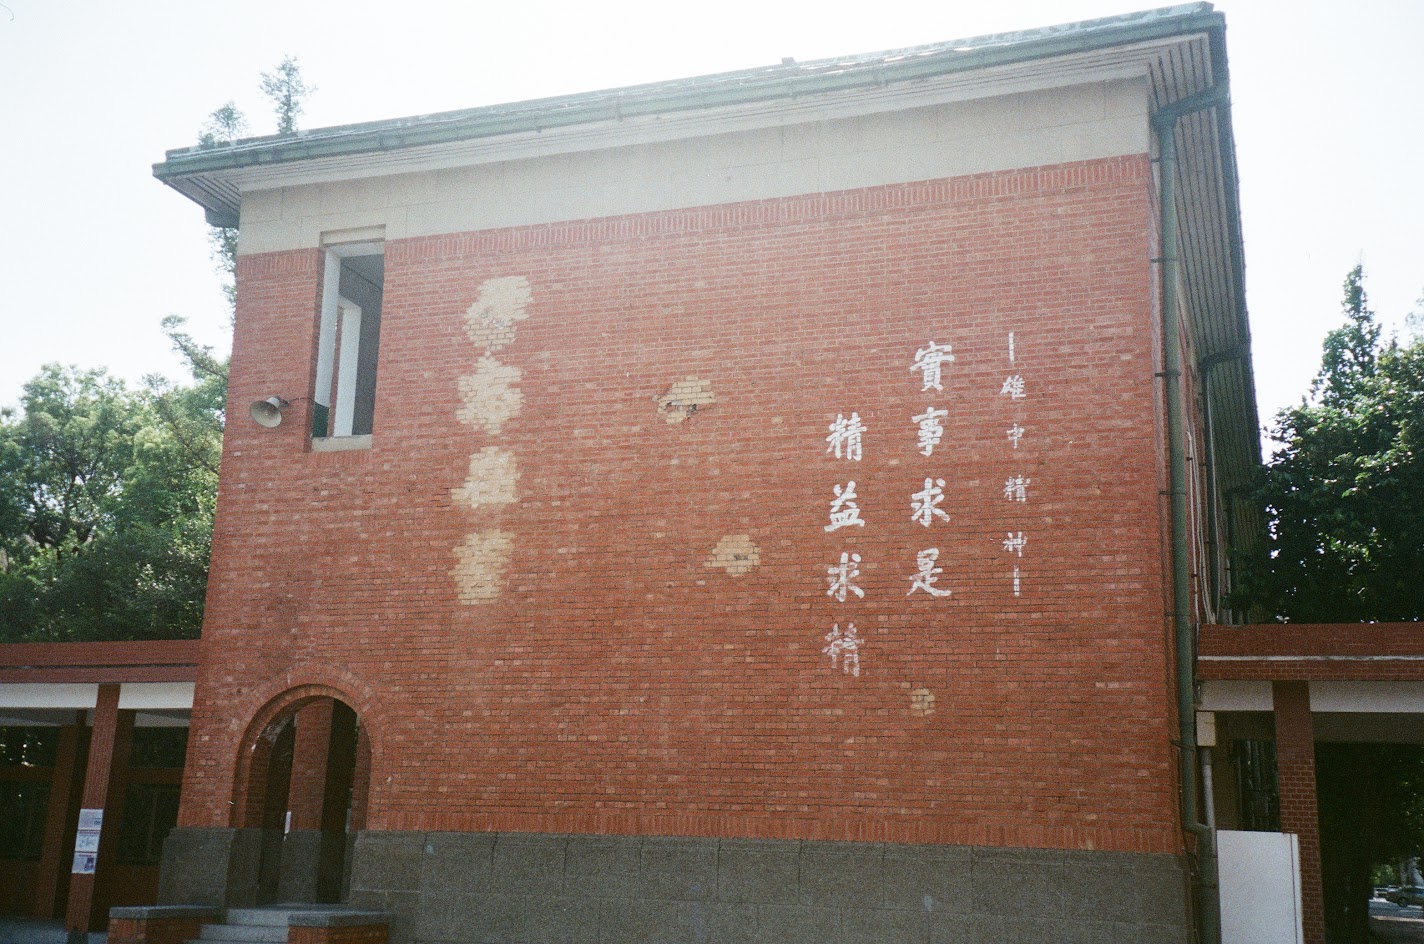 —雄中精神—
實事求是
精益求精